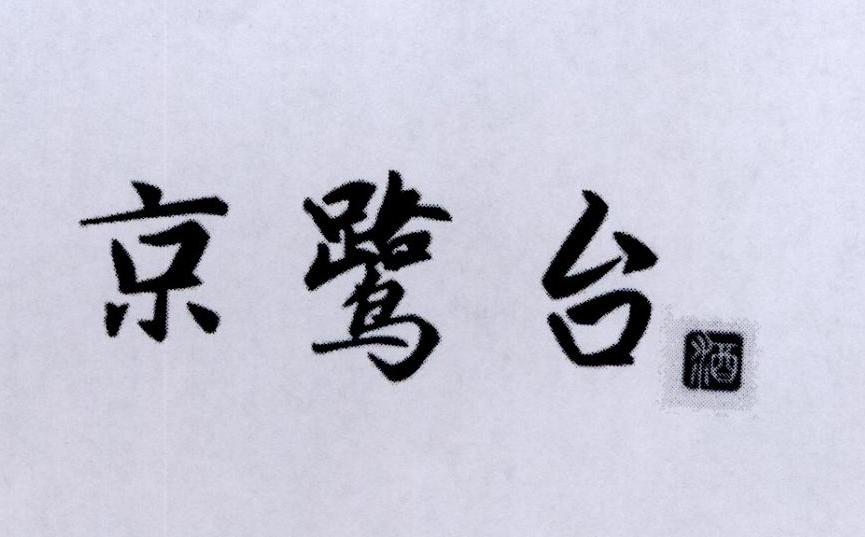 京鹭台
酒